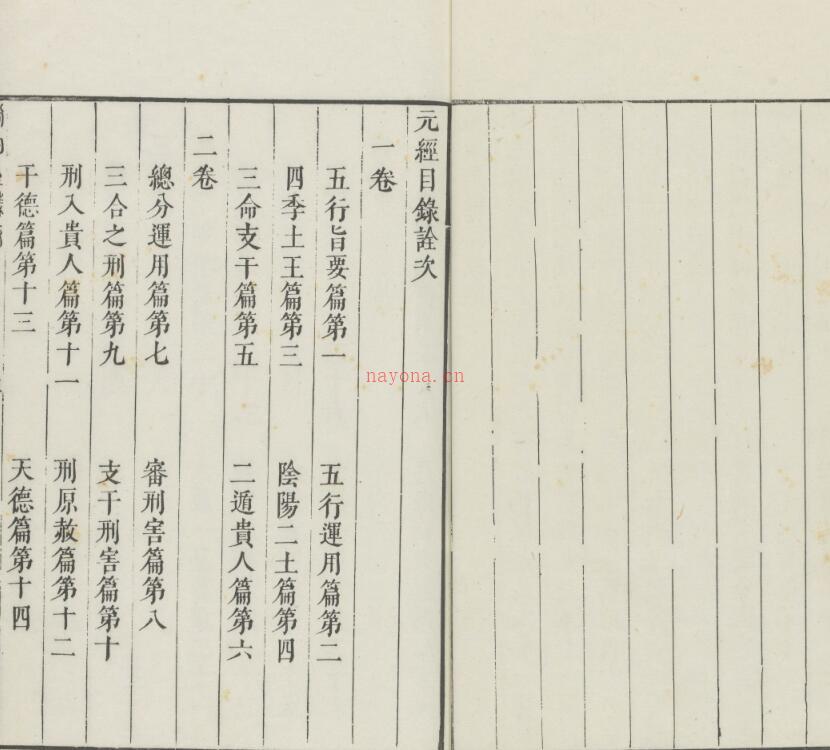 元經目錄詮次
一卷
五行旨要篇第一 五行運用篇第二
四季土王篇第三 陰陽二土篇第四
三命支干篇第五 二遁貴人篇第六
二卷
總分運用篇第七 審刑害篇第八
三合之刑篇第九 支干刑害篇第十
刑入貴人篇第十一 刑原赦篇第十二
干德篇第十三 天德篇第十四
nayona.cn